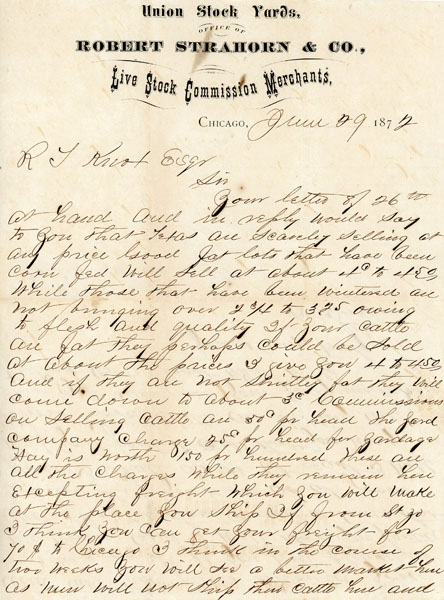 Union Stock Yards,
OFFICE OF
ROBERT STRAHORN & CO.,
Live Stock Commission Merchants,
CHICAGO, June 29 1872
R T Knox Esqr
Sir
Your letter of 26th
at hand and in reply would say
to you that Texas are scarcely selling at
any price Good fat lots that have been
corn fed will sell at about 4c to 4.50
while those that have been wintered are
not bringing over 2 3/4 to 3 25 owing
to flesh and quality If your cattle
are fat they perhaps could be sold
at about the prices I give you 4 to 4.50
and if they are not strictly fat they will
come down to about 3c Commissions
on selling cattle are 50c pr head The yard
company charge 25c pr head for yardage
Hay is worth 150 pr hundred These are
all the charges while they remain here
Excepting freight which you will make
at the place you ship If from St Jo
I think you can get your freight for
70 $ to Chicago I think in the course of
two weeks you will see a better market here
as men will not ship thin cattle here and